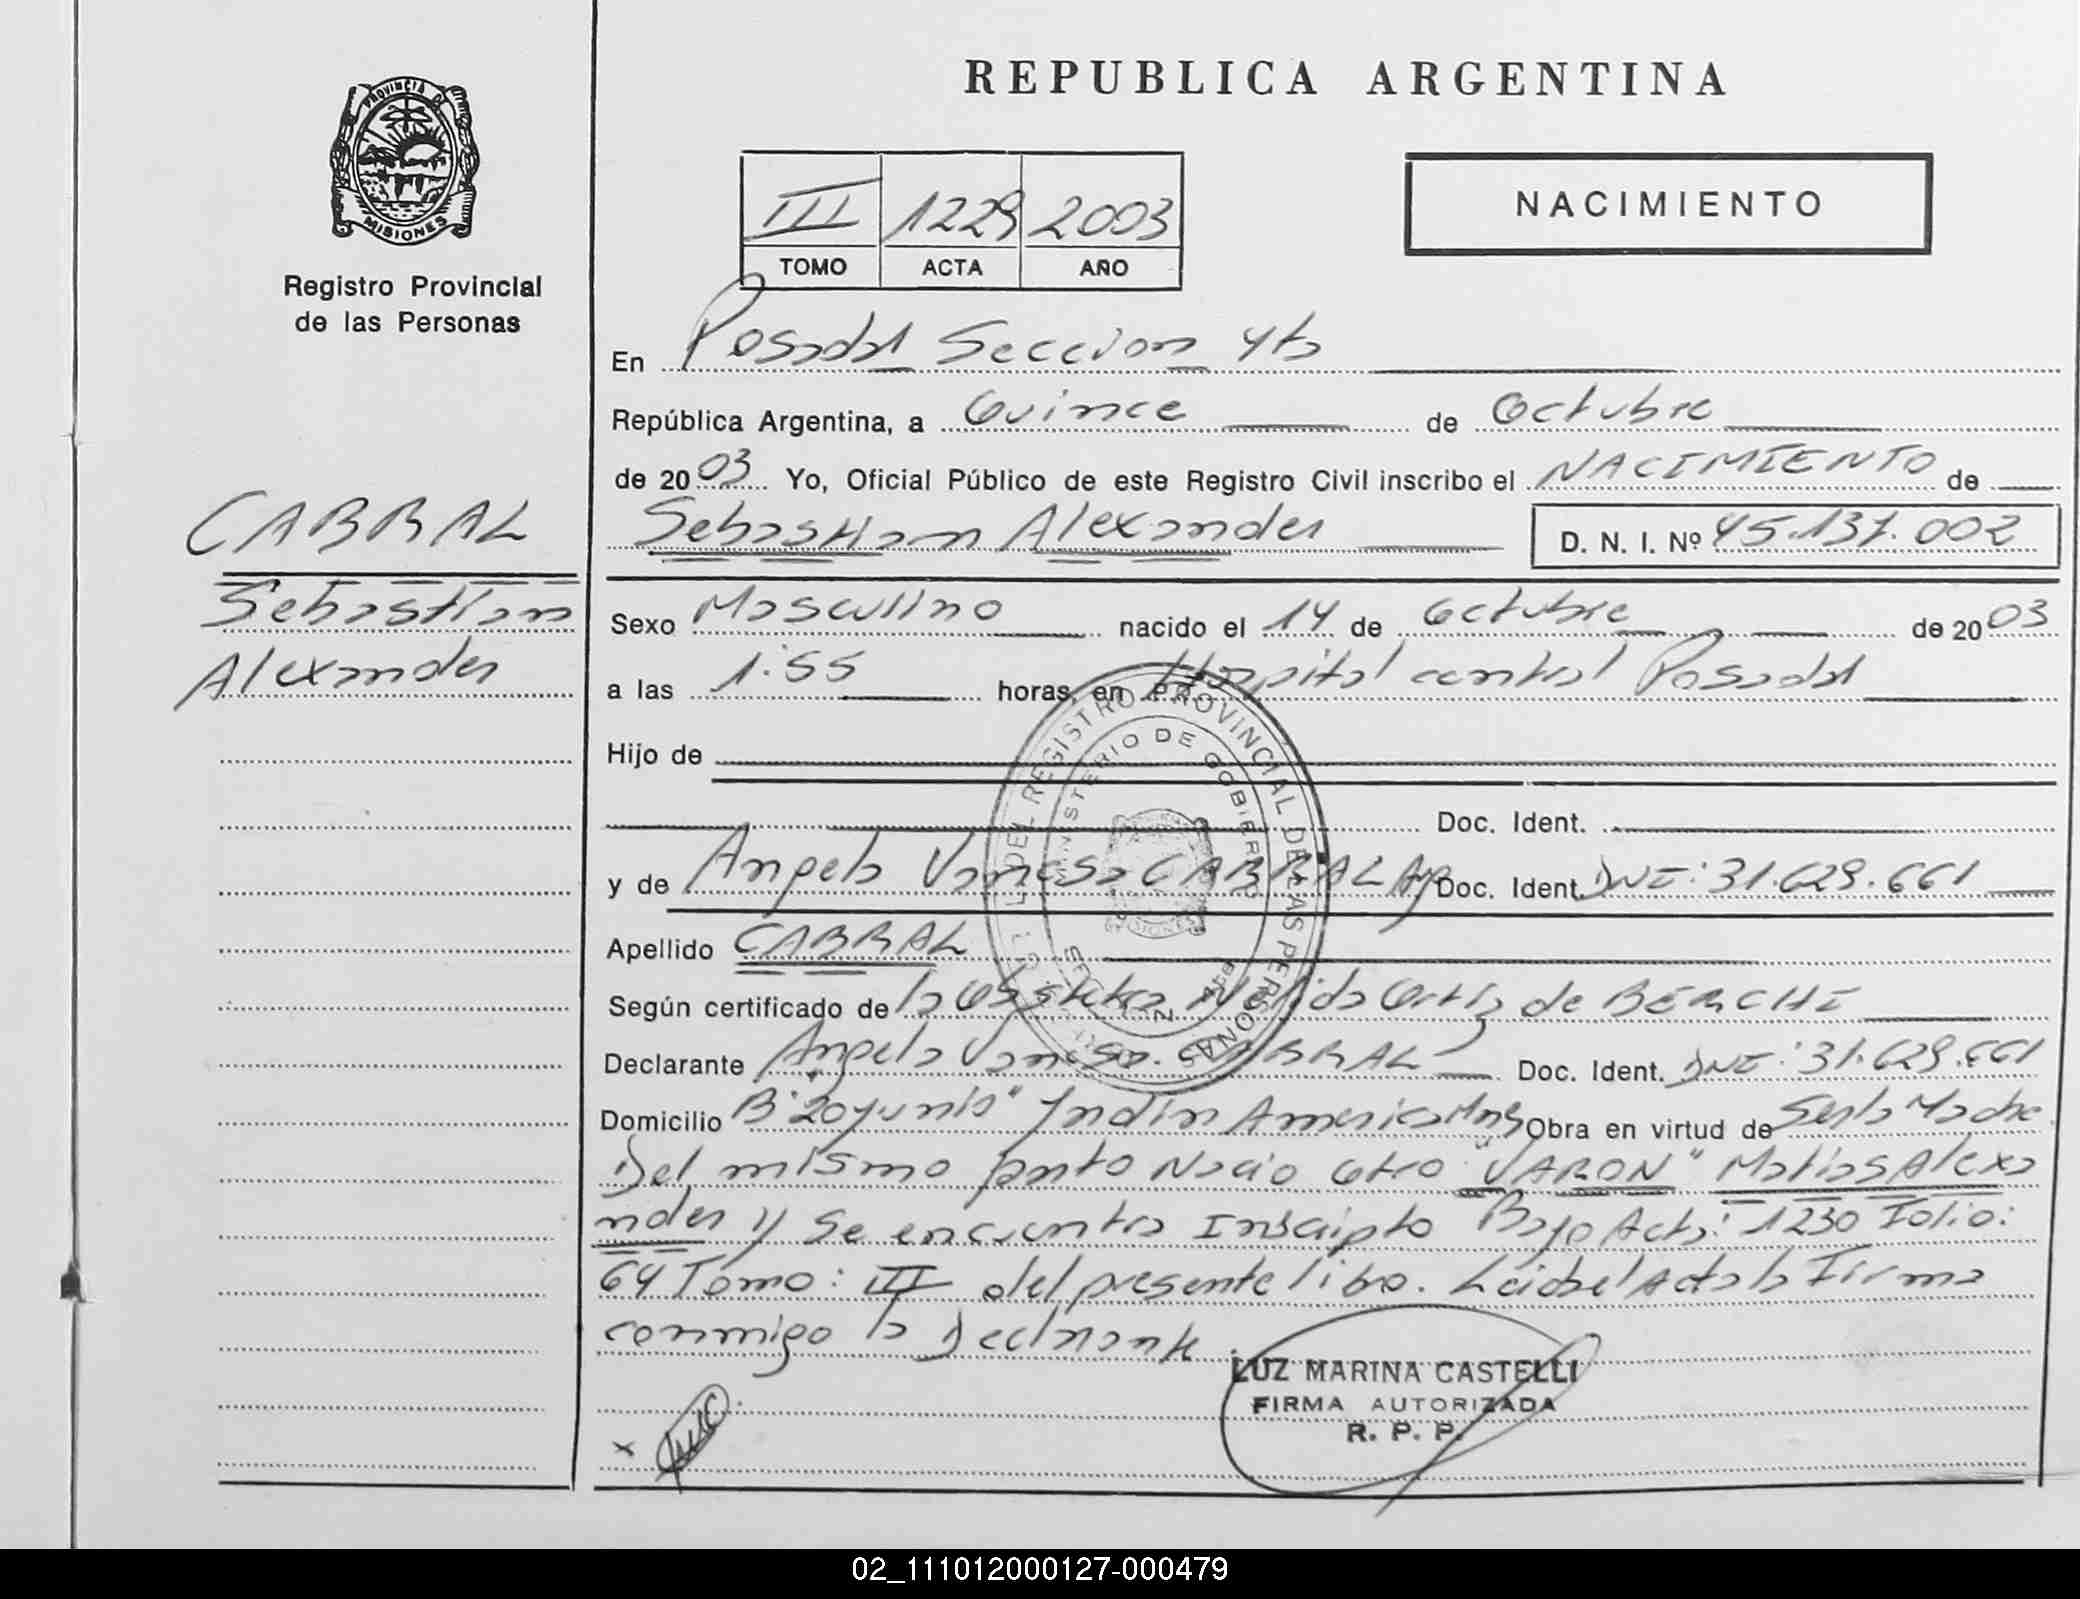 REPUBLICA ARGENTINA
PROVINCIA DE
MISIONES
Registro Provincial
de las Personas
III 1229 2003
TOMO ACTA AÑO
NACIMIENTO
En Posadas Seccion 4ta
República Argentina, a Quince de Octubre
de 2003 Yo, Oficial Público de este Registro Civil inscribo el NACIMIENTO de
CABRAL
Sebastian
Alexander
Sebastian Alexander D. N. I. Nº 45.137.002
Sexo Masculino nacido el 14 de Octubre de 2003
a las 1:55 horas, en Hospital central Posadas
Hijo de
Doc. Ident.
y de Angela Vanesa CABRAL Arg Doc. Ident. DNI: 31.629.661
Apellido CABRAL
Según certificado de la Obstetra Nelida Ortiz de BERCHI
Declarante Angela Vanesa CABRAL Doc. Ident. DNI: 31.629.661
Domicilio B "20 Junio" Jndin America Mns Obra en virtud de Ser la Madre
Del mismo parto Nacio otro "VARON" Matias Alexa
nder y Se encuentra Inscripto Bajo Acta: 1230 Folio:
64 Tomo: III del presente libro. Leida el Acta la Firma
conmigo la Declarante
DEL REGISTRO PROVINCIAL DE LAS PERSONAS
MINISTERIO DE GOBIERNO
MISIONES
LUZ MARINA CASTELLI
FIRMA AUTORIZADA
R. P. P.
x
02_111012000127-000479